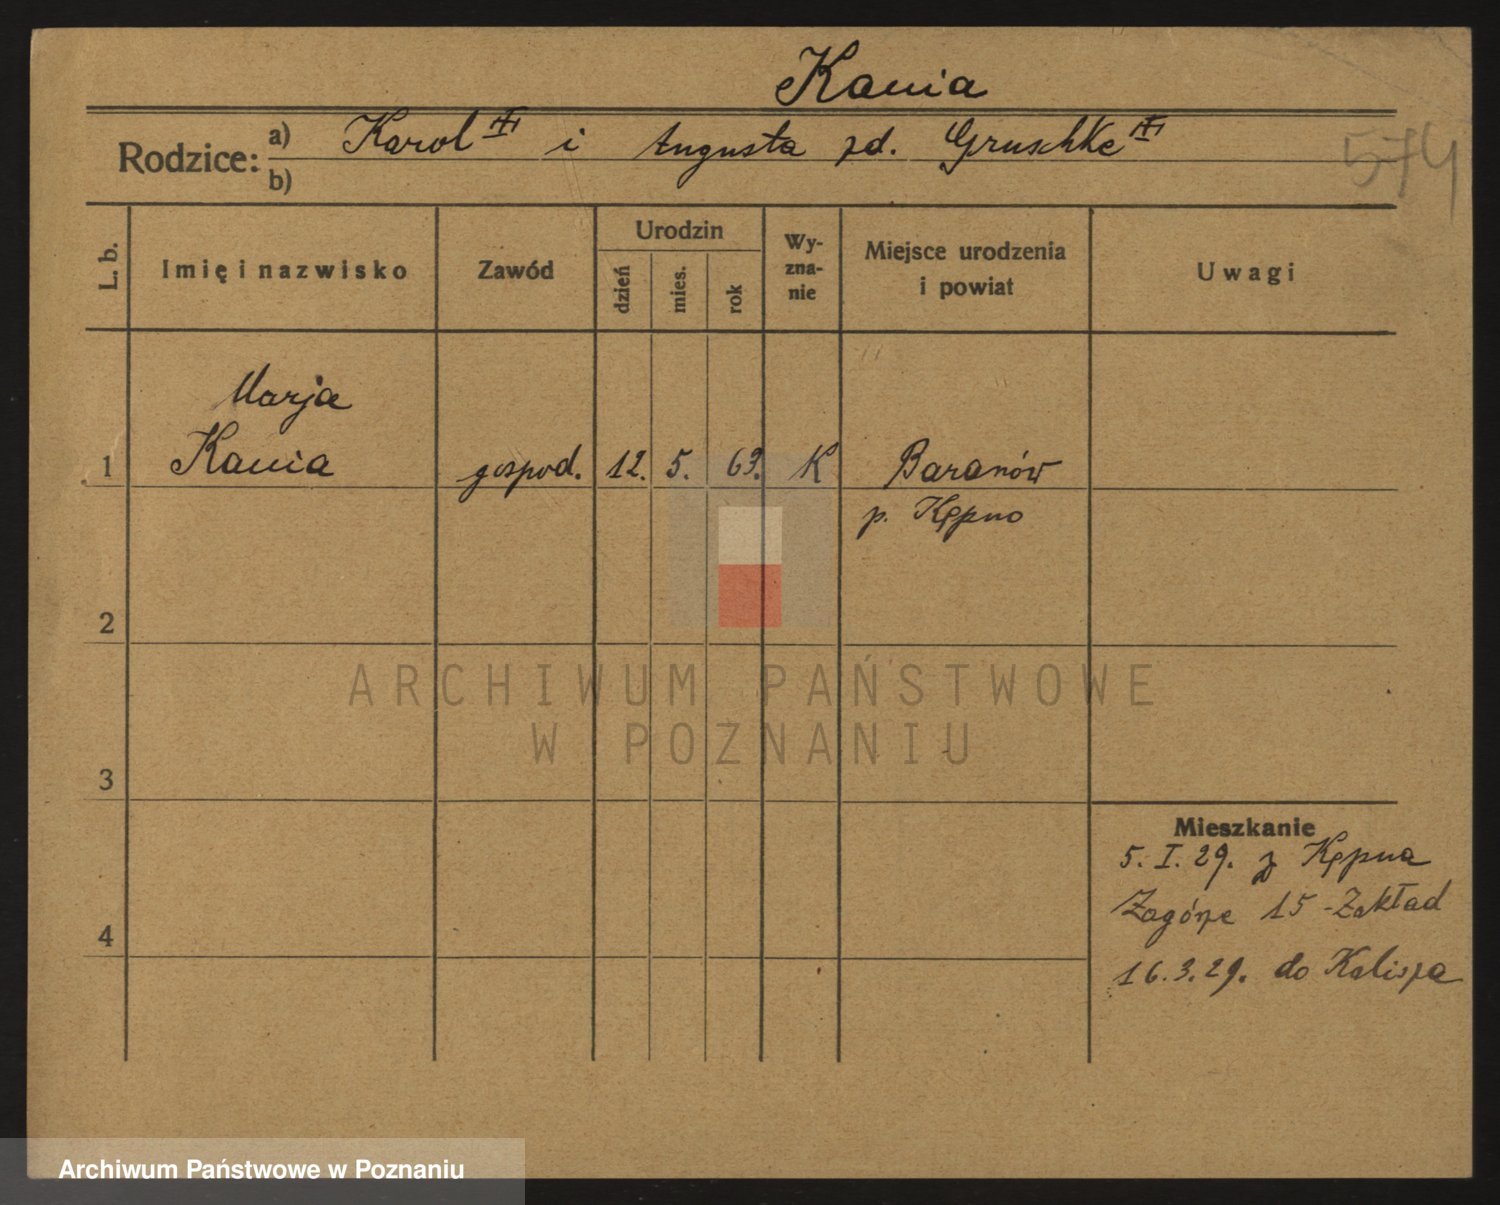 Kania
Rodzice: a) Karol i Augusta zd. Gruschke
b)
574
L. b. Imię i nazwisko Zawód Urodzin dzień mies. rok Wy-zna-nie Miejsce urodzenia i powiat Uwagi
Marja
1 Kania gospod. 12. 5. 69. K Baranów
p. Kępno
2
ARCHIWUM PAŃSTWOWE
W POZNANIU
3
Mieszkanie
5. I. 29. z Kępna
Zagórze 15 - Zakład
4
16.3.29. do Kalisza
Archiwum Państwowe w Poznaniu